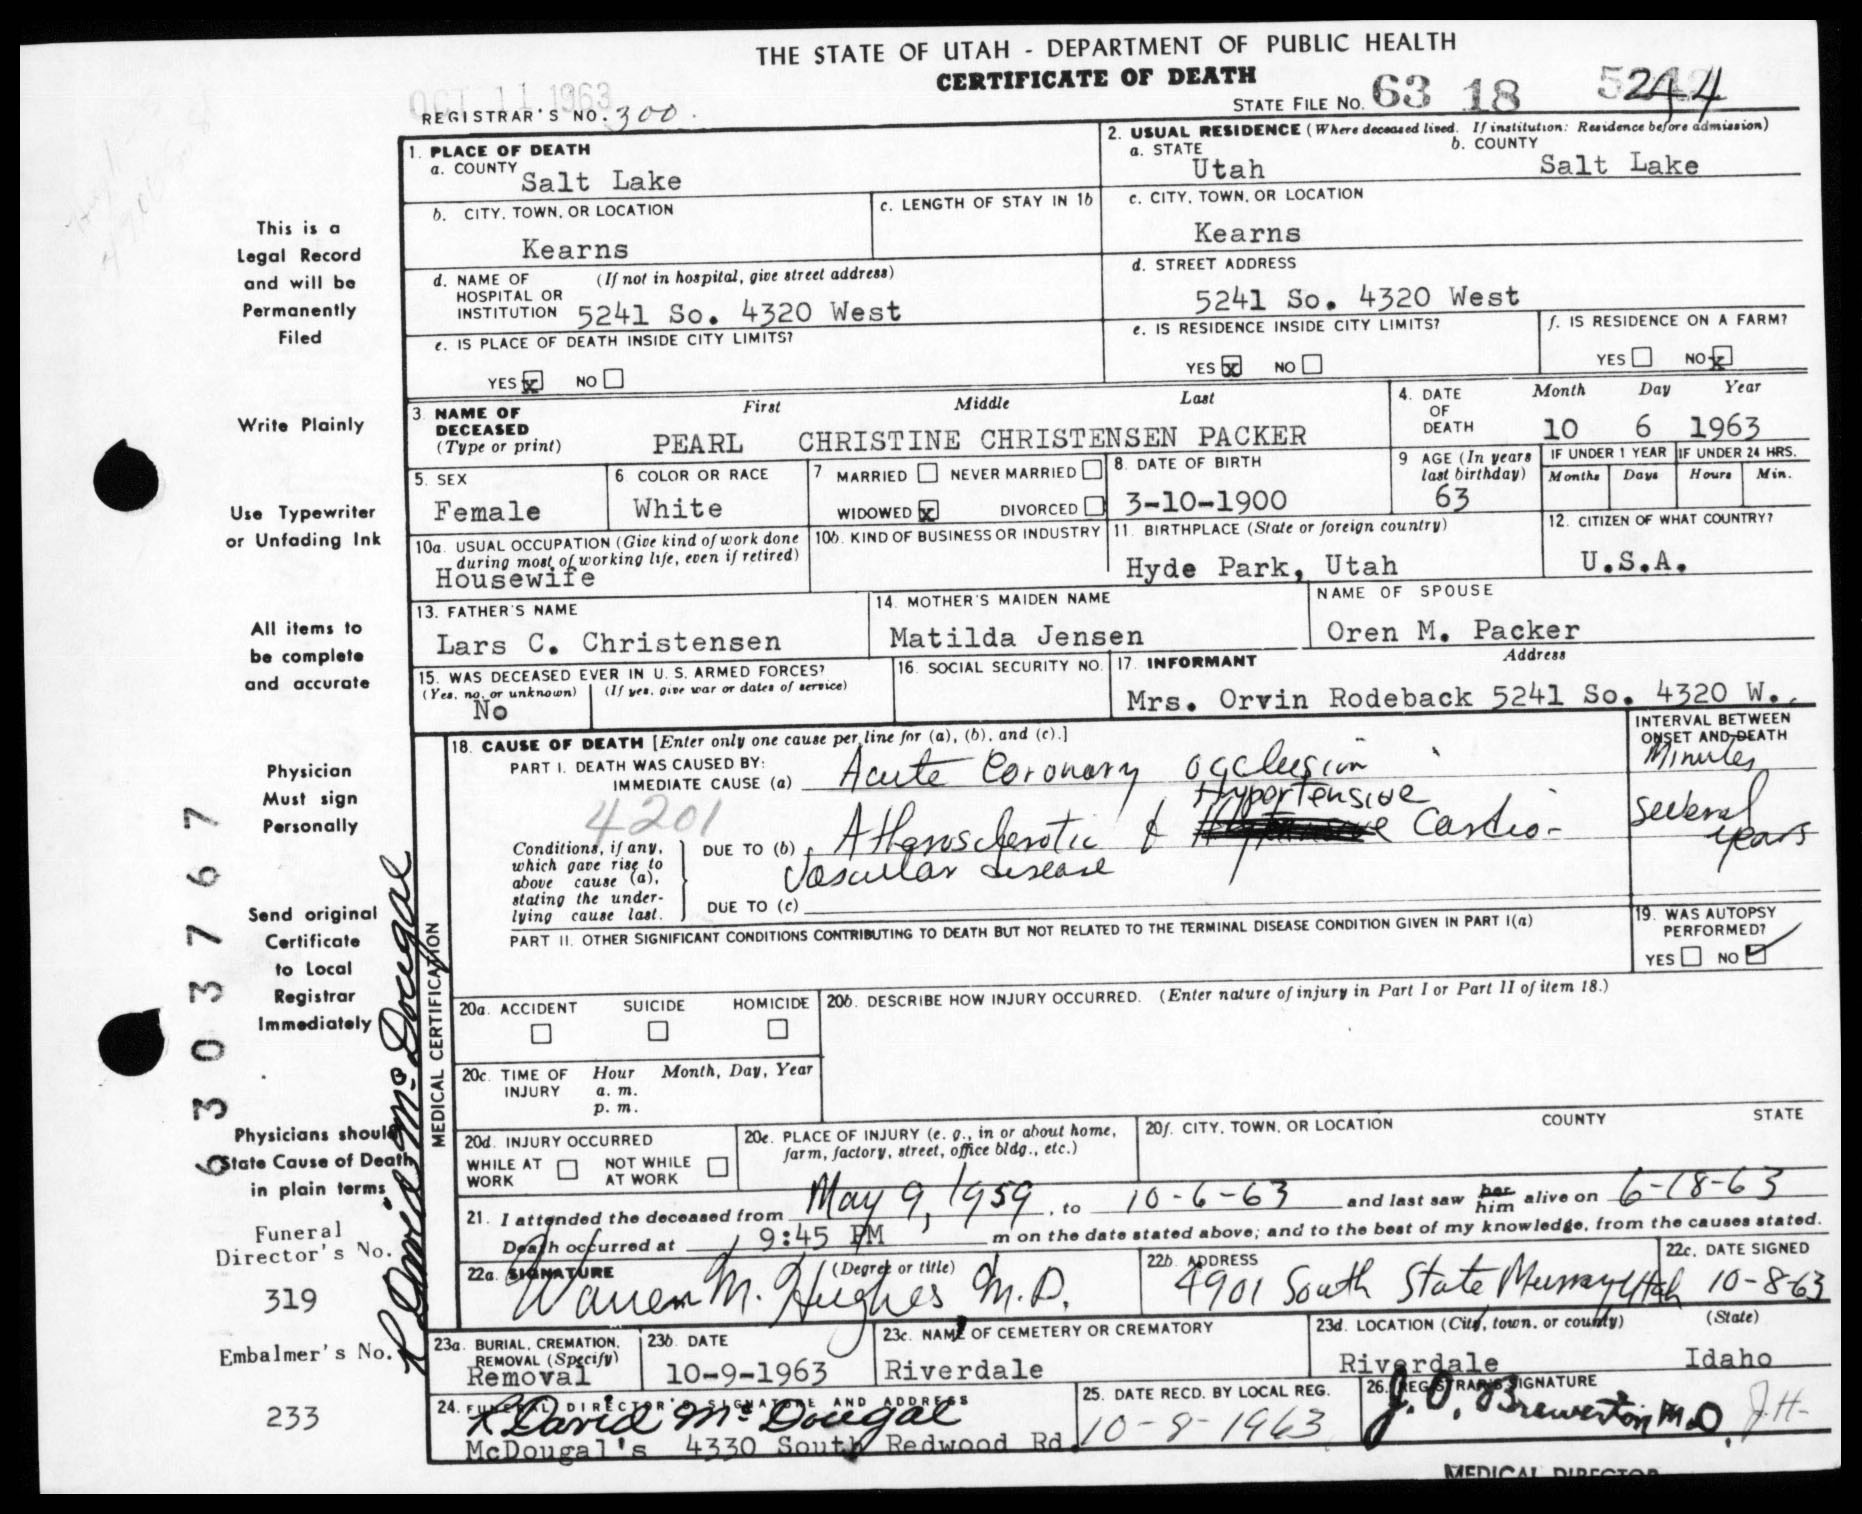 THE STATE OF UTAH - DEPARTMENT OF PUBLIC HEALTH
CERTIFICATE OF DEATH
OCT 11 1963
REGISTRAR'S NO. 300.
STATE FILE NO. 63 18 5244
1. PLACE OF DEATH
a. COUNTY Salt Lake
2. USUAL RESIDENCE (Where deceased lived. If institution: Residence before admission)
a. STATE Utah b. COUNTY Salt Lake
b. CITY, TOWN, OR LOCATION Kearns
c. LENGTH OF STAY IN 1b
c. CITY, TOWN, OR LOCATION Kearns
d. NAME OF HOSPITAL OR INSTITUTION (If not in hospital, give street address) 5241 So. 4320 West
d. STREET ADDRESS 5241 So. 4320 West
e. IS PLACE OF DEATH INSIDE CITY LIMITS?
YES x NO
e. IS RESIDENCE INSIDE CITY LIMITS?
YES x NO
f. IS RESIDENCE ON A FARM?
YES NO x
3. NAME OF DECEASED (Type or print)
First Middle Last
PEARL CHRISTINE CHRISTENSEN PACKER
4. DATE OF DEATH Month Day Year
10 6 1963
5. SEX Female
6. COLOR OR RACE White
7 MARRIED NEVER MARRIED
WIDOWED x DIVORCED
8. DATE OF BIRTH 3-10-1900
9 AGE (In years last birthday) 63
IF UNDER 1 YEAR Months Days
IF UNDER 24 HRS. Hours Min.
10a. USUAL OCCUPATION (Give kind of work done during most of working life, even if retired)
Housewife
10b. KIND OF BUSINESS OR INDUSTRY
11. BIRTHPLACE (State or foreign country)
Hyde Park, Utah
12. CITIZEN OF WHAT COUNTRY?
U.S.A.
13. FATHER'S NAME
Lars C. Christensen
14. MOTHER'S MAIDEN NAME
Matilda Jensen
NAME OF SPOUSE
Oren M. Packer
15. WAS DECEASED EVER IN U. S. ARMED FORCES?
(Yes, no, or unknown) (If yes, give war or dates of service)
No
16. SOCIAL SECURITY NO.
17. INFORMANT Address
Mrs. Orvin Rodeback 5241 So. 4320 W.
18. CAUSE OF DEATH [Enter only one cause per line for (a), (b), and (c).]
INTERVAL BETWEEN ONSET AND DEATH
PART I. DEATH WAS CAUSED BY:
IMMEDIATE CAUSE (a) Acute Coronary occlusion
Minutes
4201
Hypertensive
Conditions, if any, which gave rise to above cause (a), stating the underlying cause last.
DUE TO (b) Atherosclerotic & Cardio-
Vascular disease
several years
DUE TO (c)
PART II. OTHER SIGNIFICANT CONDITIONS CONTRIBUTING TO DEATH BUT NOT RELATED TO THE TERMINAL DISEASE CONDITION GIVEN IN PART I(a)
19. WAS AUTOPSY PERFORMED?
YES NO ✓
MEDICAL CERTIFICATION
20a. ACCIDENT SUICIDE HOMICIDE
20b. DESCRIBE HOW INJURY OCCURRED. (Enter nature of injury in Part I or Part II of item 18.)
20c. TIME OF INJURY Hour Month, Day, Year
a. m.
p. m.
20d. INJURY OCCURRED
WHILE AT WORK NOT WHILE AT WORK
20e. PLACE OF INJURY (e. g., in or about home, farm, factory, street, office bldg., etc.)
20f. CITY, TOWN, OR LOCATION COUNTY STATE
21. I attended the deceased from May 9, 1959, to 10-6-63 and last saw her him alive on 6-18-63
Death occurred at 9:45 PM m on the date stated above; and to the best of my knowledge, from the causes stated.
22a. SIGNATURE (Degree or title)
Warren M. Hughes M.D.
22b. ADDRESS
4901 South State Murray Utah
22c. DATE SIGNED
10-8-63
23a. BURIAL, CREMATION, REMOVAL (Specify)
Removal
23b. DATE
10-9-1963
23c. NAME OF CEMETERY OR CREMATORY
Riverdale
23d. LOCATION (City, town, or county) (State)
Riverdale Idaho
24. FUNERAL DIRECTOR'S SIGNATURE AND ADDRESS
R David McDougal
McDougal's 4330 South Redwood Rd.
25. DATE RECD. BY LOCAL REG.
10-8-1963
26. REGISTRAR'S SIGNATURE
J. O. Brewerton M.D. J.H.
MEDICAL DIRECTOR
This is a
Legal Record
and will be
Permanently
Filed
Write Plainly
Use Typewriter
or Unfading Ink
All items to
be complete
and accurate
Physician
Must sign
Personally
Send original
Certificate
to Local
Registrar
Immediately
Physicians should
State Cause of Death
in plain terms
Funeral
Director's No.
319
Embalmer's No.
233
6303767
R David McDougal